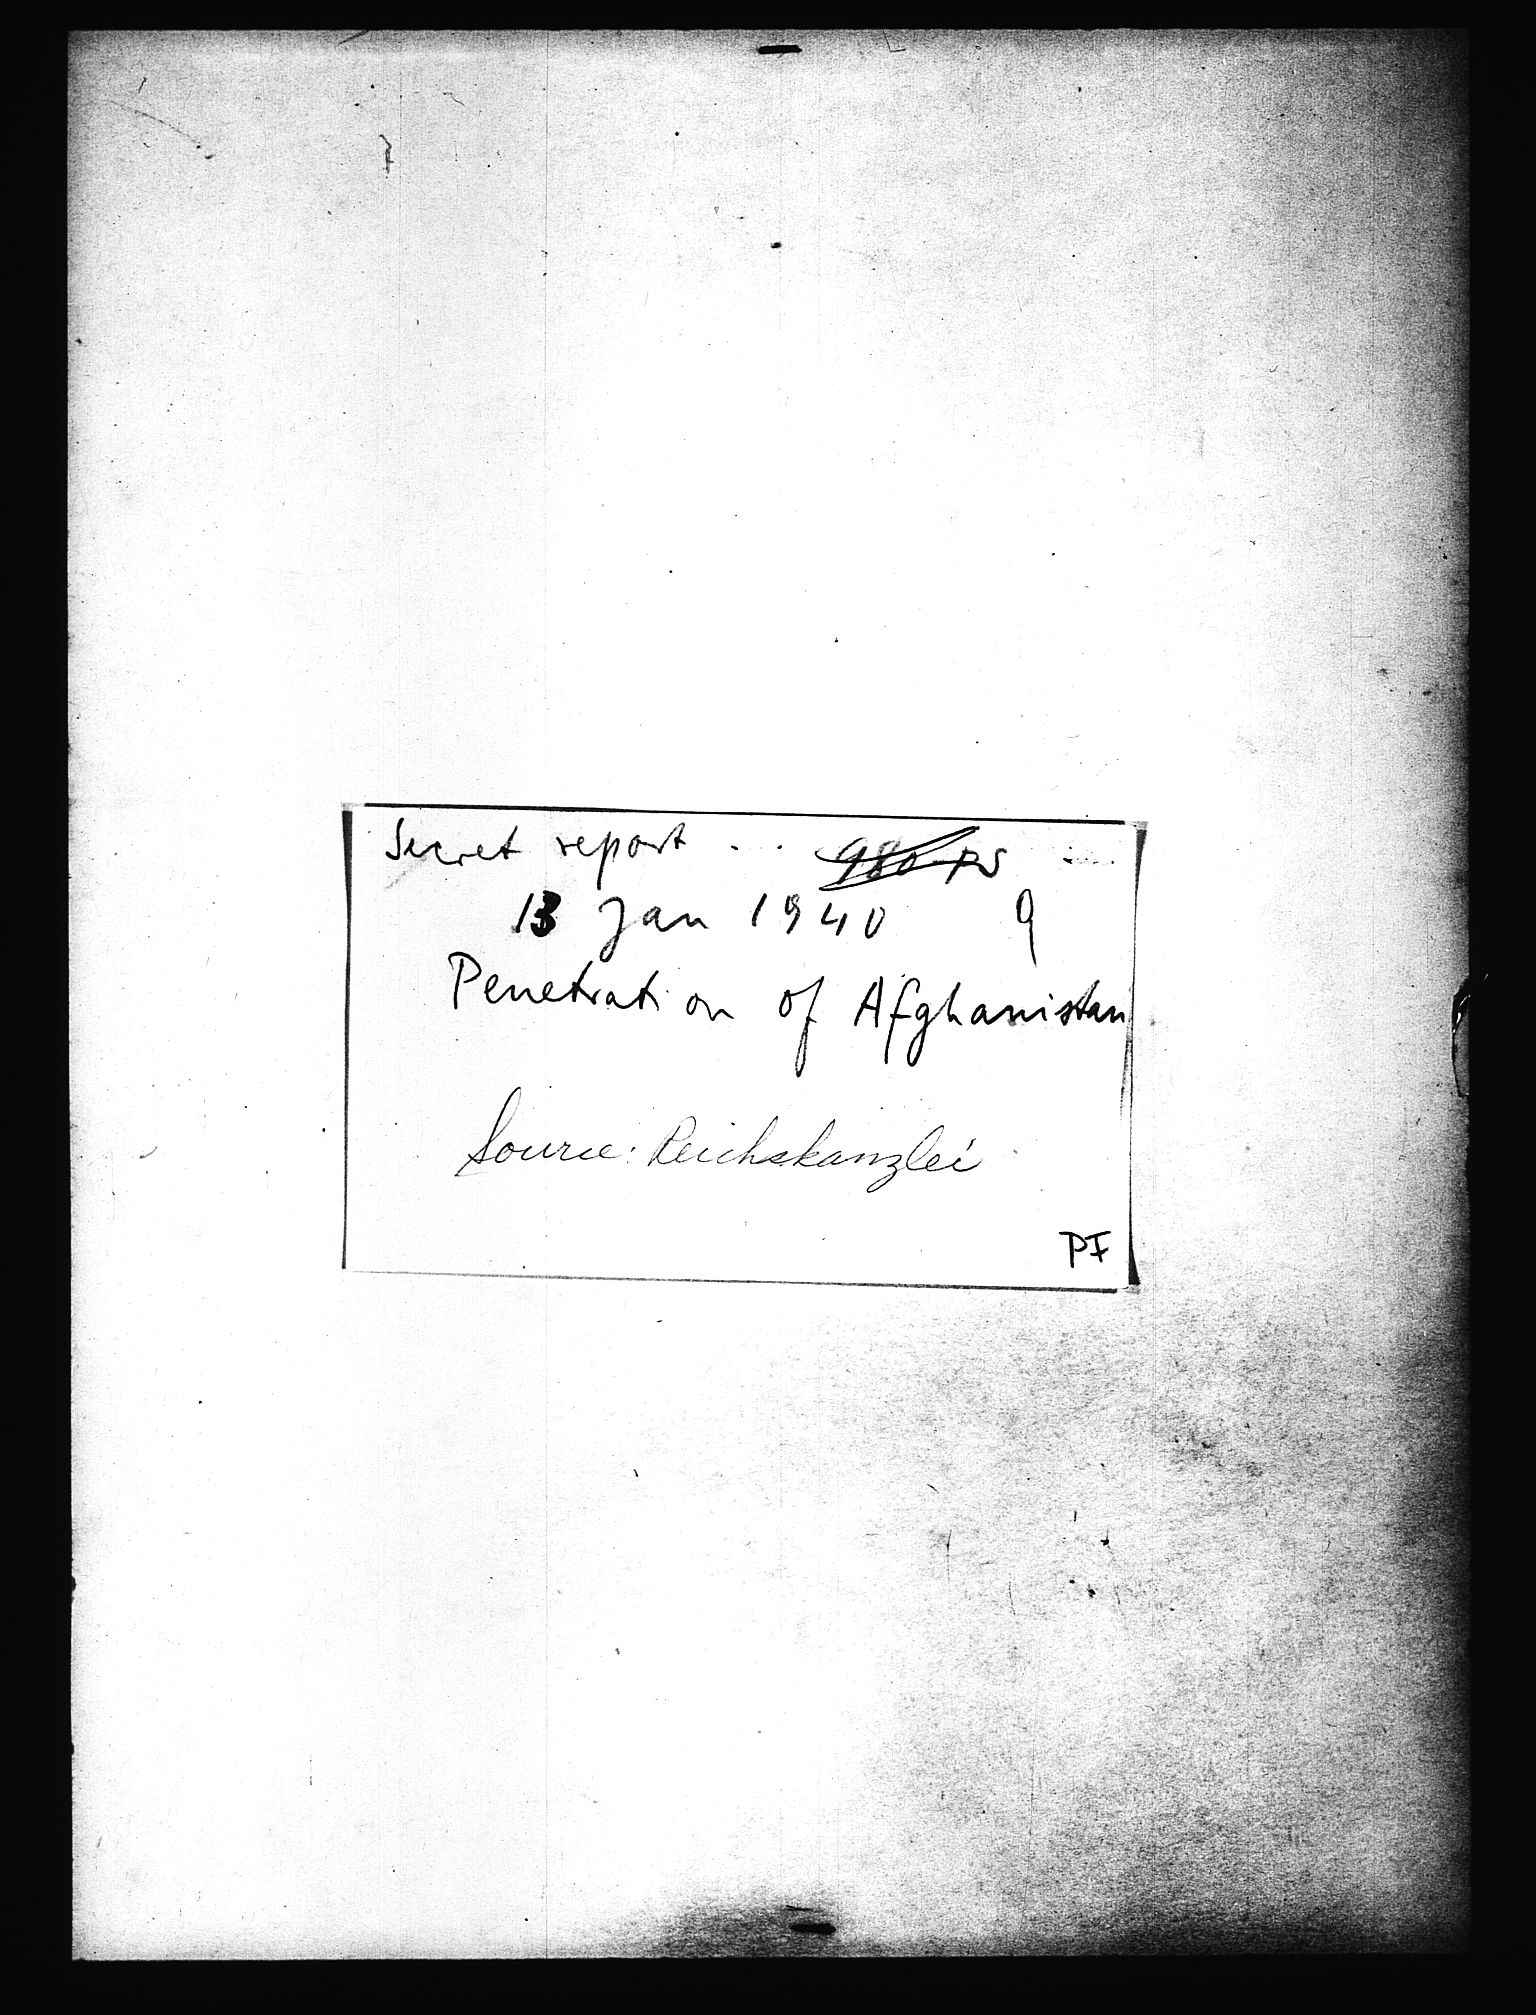 Secret report ... 980 PS
13 Jan 1940 9
Penetration of Afghanistan
Source: Reichskanzlei
PF